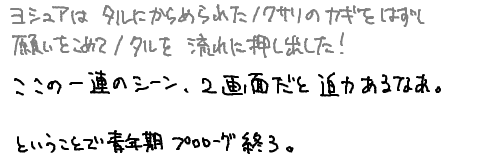 ヨシュアは タルにからめられた/クサリのカギをはずし
願いをこめて/タルを 流れに押し出した!
ここの一連のシーン、2画面だと迫力あるなあ。
ということで青年期 プロローグ終了。